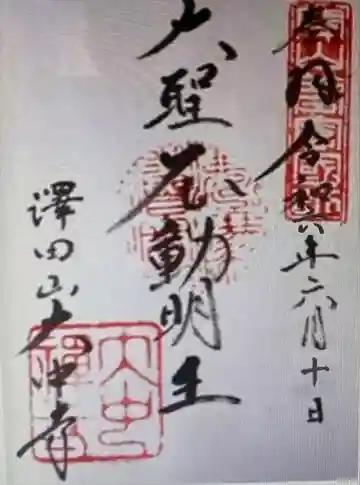 奉拝 令和六年六月十日
大聖不動明王
澤田山大中寺